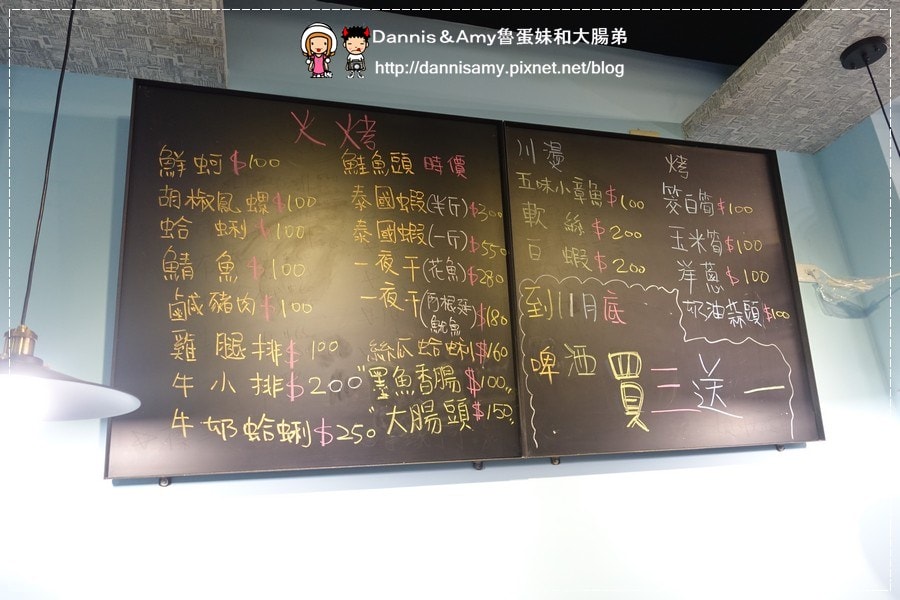 Dannis&Amy魯蛋妹和大腸弟
http://dannisamy.pixnet.net/blog
火烤
鮮蚵$100
胡椒鳳螺$100
蛤蜊$100
鯖魚$100
鹹豬肉$100
雞腿排$100
牛小排$200
牛奶蛤蜊$250
鮭魚頭 時價
泰國蝦(半斤)$300
泰國蝦(一斤)$550
一夜干(花魚)$280
一夜干(阿根廷魷魚)$180
絲瓜蛤蜊$160
"墨魚香腸$100"
"大腸頭$150"
川燙
五味小章魚$100
軟絲$200
白蝦$200
烤
筊白筍$100
玉米筍$100
洋蔥$100
奶油蒜頭$100
到11月底
啤酒 買三送一